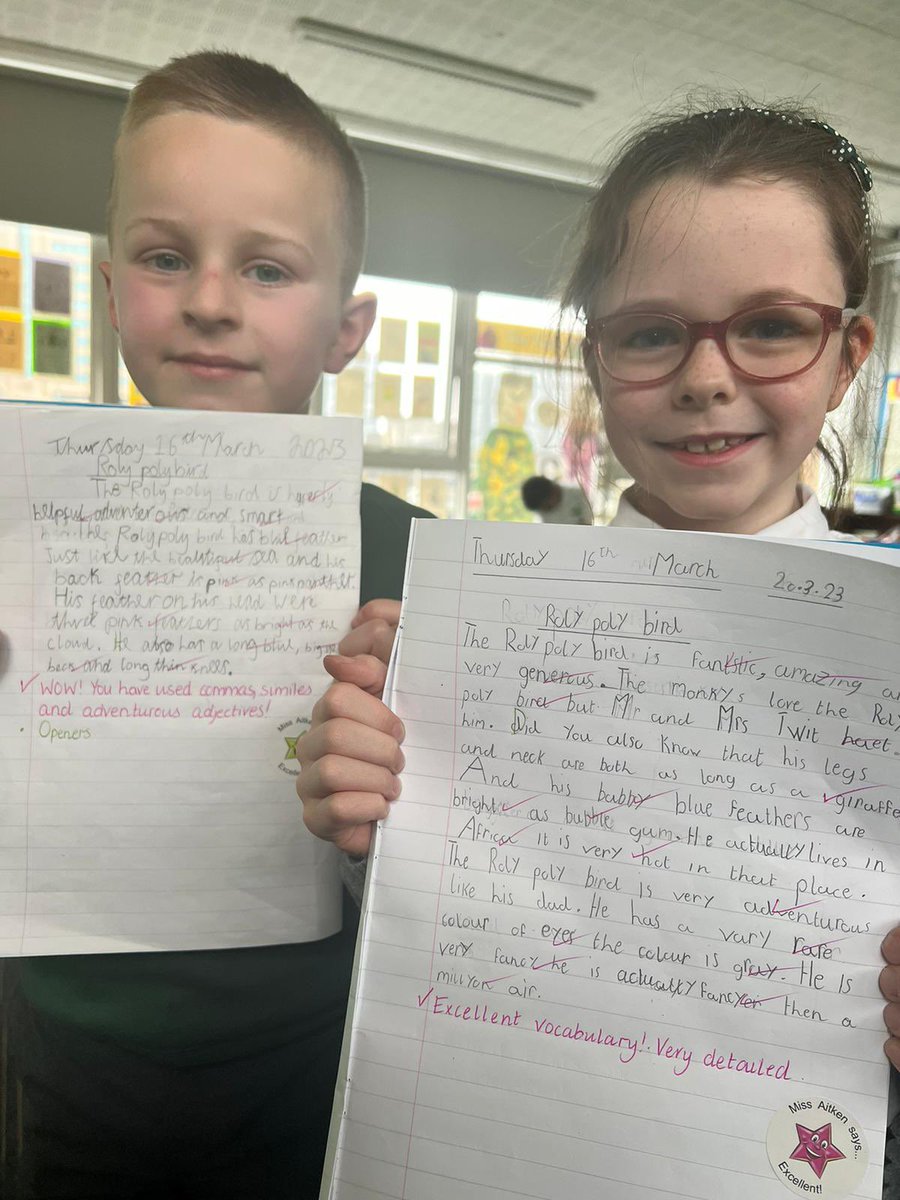 Thursday 16th March 2023
Roly poly bird
The Roly poly bird is
helpful, adventerous and smart
bird. The Roly poly bird has blue feather
Just like the sea and his
back feather is pink as pink
His feather on his head were
three pink feathers as bright as the
cloud. He also has a long blue, big
beck and long thin
WOW! You have used commas, similes
and adventurous adjectives!
Openers
Miss Aitken
Excellent
Thursday 16th March 20.3.23
Roly poly bird
The Roly poly bird is fantstic, amazing
very generous. The monkys love the Roly
poly bird but Mr and Mrs Twit haet
him. Did You also know that his legs
and neck are both as long as a giraffe
And his babby blue feathers are
bright as bubble gum. He actually lives in
Africa it is very hot in that place.
The Roly poly bird is very adventurous
like his dad. He has a vary rare
colour of eyes the colour is gray. He is
very fancy he is actually fancyer then a
millyon air.
Excellent vocabulary! Very detailed.
Miss Aitken says...
Excellent!